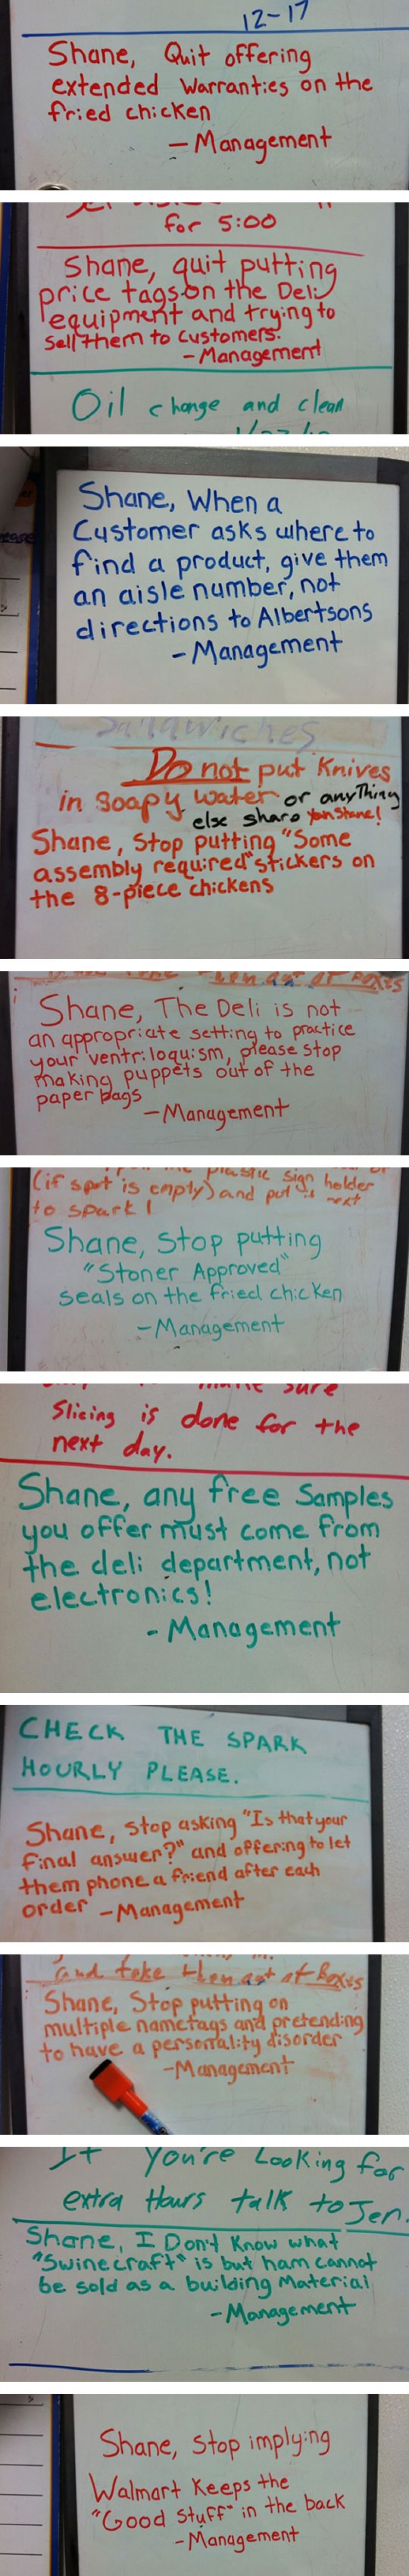 12-17
Shane, Quit offering
extended Warranties on the
fried chicken
- Management
for 5:00
Shane, quit putting
price tags on the Deli
equipment and trying to
sell them to customers.
- Management
Oil change and clean
Shane, When a
Customer asks where to
find a product, give them
an aisle number, not
directions to Albertsons
- Management
Sandwiches
Do not put Knives
in Soapy water or anything
else sharp Yeah Shane!
Shane, Stop putting "Some
assembly required" stickers on
the 8-piece chickens
Shane, The Deli is not
an appropriate setting to practice
your ventriloquism, please stop
making puppets out of the
paper bags
- Management
plastic sign holder
(if spot is empty) and put is next
to spark!
Shane, Stop putting
"Stoner Approved"
seals on the fried chicken
- Management
make sure
Slicing is done for the
next day.
Shane, any free Samples
you offer must come from
the deli department, not
electronics!
- Management
CHECK THE SPARK
HOURLY PLEASE.
Shane, stop asking "Is that your
final answer?" and offering to let
them phone a friend after each
order - Management
and take
Shane, Stop putting on
multiple nametags and pretending
to have a personality disorder
- Management
If you're Looking for
extra Hours talk to Jen.
Shane, I Don't Know what
"Swinecraft" is but ham cannot
be sold as a building Material
- Management
Shane, stop implying
Walmart Keeps the
"Good Stuff" in the back
- Management